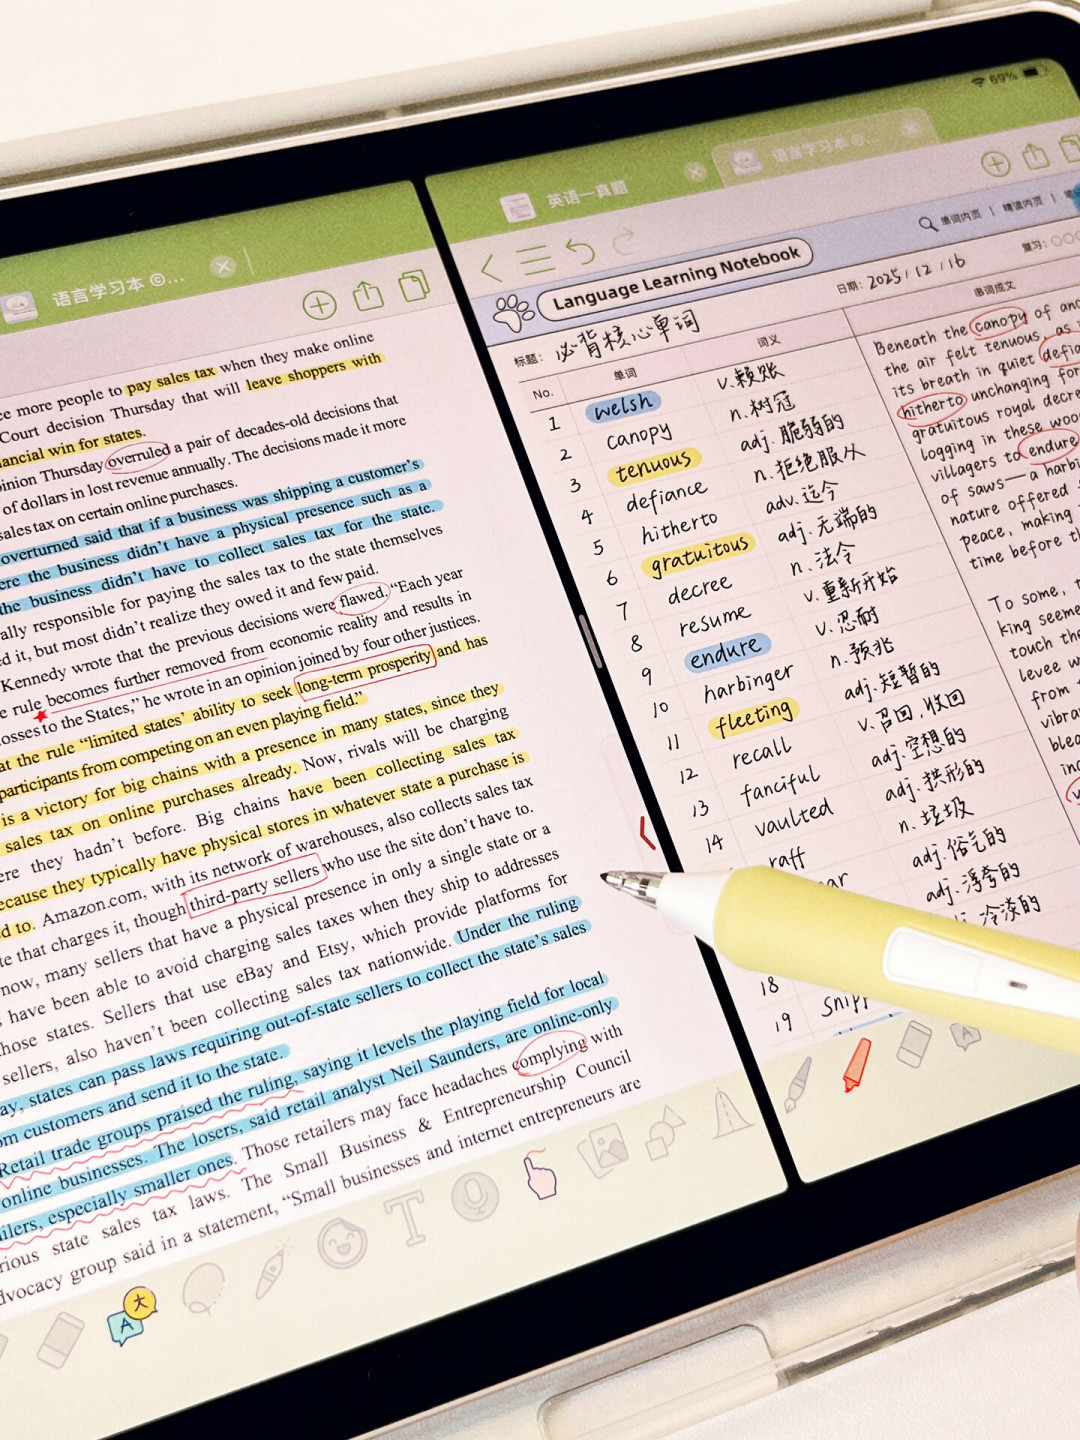 69%
语言学习本 ©...
英语一真题
语言学习本 ©...
more people to pay sales tax when they make online
Court decision Thursday that will leave shoppers with
win for states.
Thursday overruled a pair of decades-old decisions that
of dollars in lost revenue annually. The decisions made it more
sales tax on certain online purchases.
overturned said that if a business was shipping a customer's
the business didn't have a physical presence such as a
the business didn't have to collect sales tax for the state.
responsible for paying the sales tax to the state themselves
it, but most didn't realize they owed it and few paid.
Kennedy wrote that the previous decisions were flawed. “Each year
rule becomes further removed from economic reality and results in
to the States,” he wrote in an opinion joined by four other justices.
at the rule “limited states’ ability to seek long-term prosperity and has
participants from competing on an even playing field.”
is a victory for big chains with a presence in many states, since they
sales tax on online purchases already. Now, rivals will be charging
they hadn't before. Big chains have been collecting sales tax
because they typically have physical stores in whatever state a purchase is
to. Amazon.com, with its network of warehouses, also collects sales tax
that charges it, though third-party sellers who use the site don't have to.
now, many sellers that have a physical presence in only a single state or a
have been able to avoid charging sales taxes when they ship to addresses
those states. Sellers that use eBay and Etsy, which provide platforms for
sellers, also haven't been collecting sales tax nationwide. Under the ruling
states can pass laws requiring out-of-state sellers to collect the state's sales
customers and send it to the state.
Retail trade groups praised the ruling, saying it levels the playing field for local
online businesses. The losers, said retail analyst Neil Saunders, are online-only
especially smaller ones. Those retailers may face headaches complying with
state sales tax laws. The Small Business & Entrepreneurship Council
advocacy group said in a statement, “Small businesses and internet entrepreneurs are
T
A 大
单词内页 | 精读内页 |
Language Learning Notebook
日期: 2025/12/16
复习:
标题: 必背核心单词
No. 单词 词义
1 welsh v.赖账
2 canopy n.树冠
3 tenuous adj.脆弱的
4 defiance n.拒绝服从
5 hitherto adv.迄今
6 gratuitous adj.无端的
7 decree n.法令
8 resume v.重新开始
9 endure v.忍耐
10 harbinger n.预兆
11 fleeting adj.短暂的
12 recall v.召回,收回
13 fanciful adj.空想的
14 vaulted adj.拱形的
n.垃圾
adj.俗气的
adj.浮夸的
冷淡的
18
19
串词成文
Beneath the canopy of
the air felt tenuous, as
its breath in quiet
hitherto unchanging for
gratuitous royal
logging in these
villagers to endure
of saws—a
nature offered
peace, making
time before
To some,
king
touch the
levee
from
A